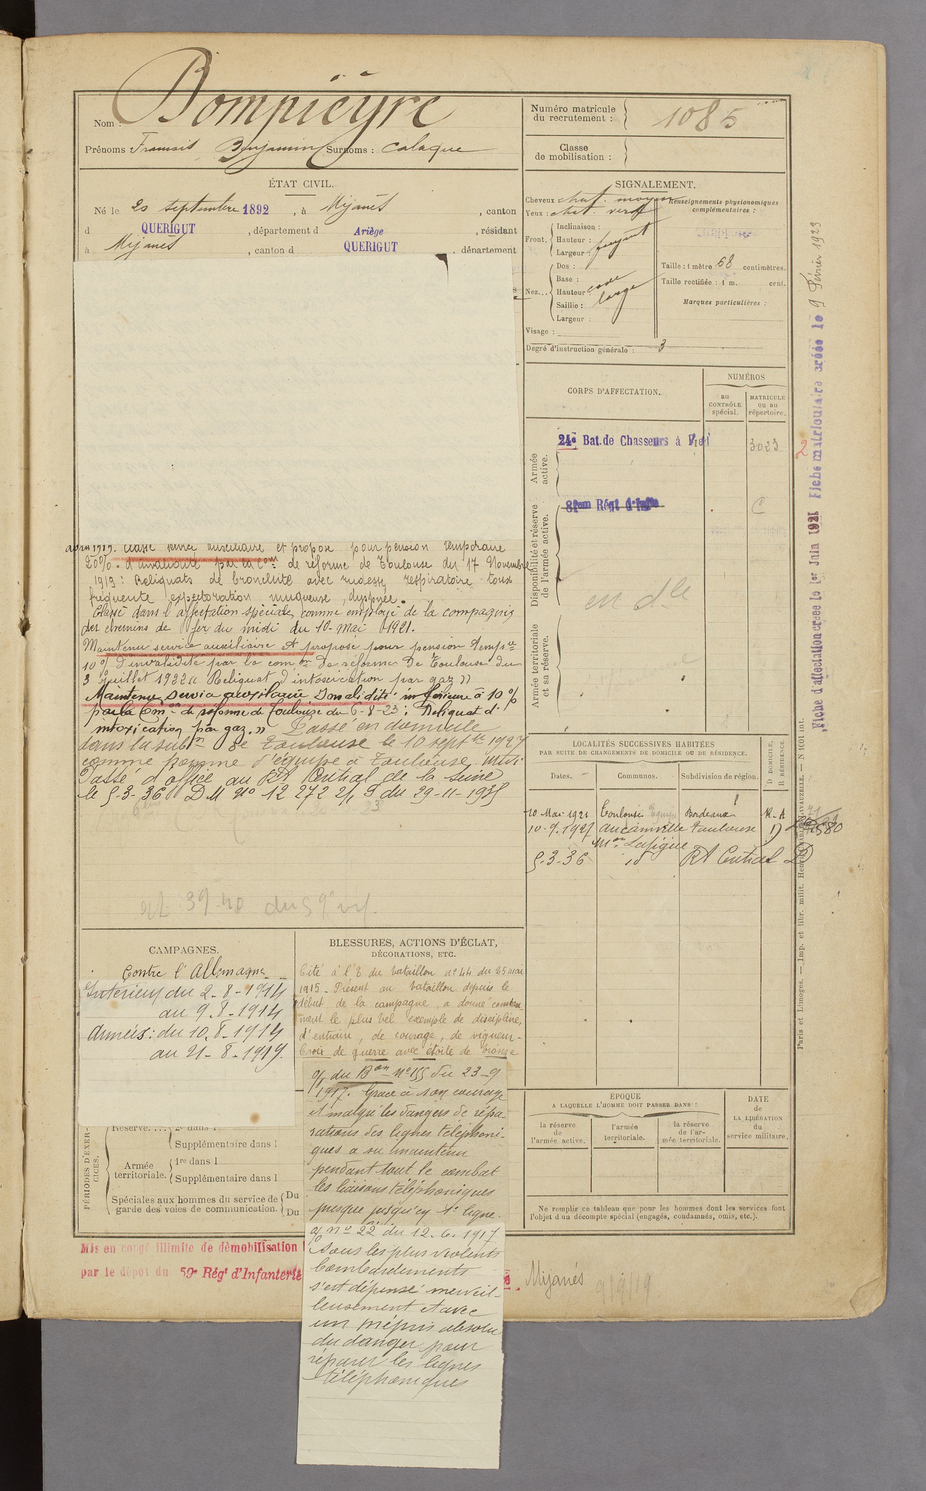 Nom : Bompieyre
Prénoms : Francois Benjamin Surnoms : Calaque
ÉTAT CIVIL.
Né le 20 septembre 1892, à Mijanès, canton
d QUERIGUT, département d Ariège, résidant
à Mijanès, canton d QUERIGUT, département
Classé service auxiliaire et proposé pour pension temporaire
20% d'invalidité par la Com de réforme de Toulouse du 17 Novembre
1919 : Reliquats de bronchite avec rudesse respiratoire toux
fréquente, expectoration muqueuse, dyspnée.
Classé dans l'affectation spéciale comme employé de la compagnie
des chemins de fer du midi du 10 Mai 1921.
Maintenu service auxiliaire et proposé pour pension temp
10% d'invalidité par la com de réforme de Toulouse du
3 Juillet 1922 « Reliquat d'intoxication par gaz »
Maintenu service auxiliaire Invalidité inférieure à 10%
par la Com de réforme de Toulouse du 6-8-23 ; Reliquat d'
intoxication par gaz. » Passé en domicile
dans la subd de Toulouse le 10 sept 1927
comme homme d'équipe à Toulouse, Midi
Passé d'office au RA Central de la Seine
le 5-3-36 DM N° 12 272 2/1 9 du 29-11-1935
CAMPAGNES.
Contre l'Allemagne
Intérieur du 2-8-1914
au 9-8-1914
Armées : du 10-8-1914
au 21-8-1919.
BLESSURES, ACTIONS D'ÉCLAT,
DÉCORATIONS, ETC.
Cité à l'O du bataillon n° 44 du 25 mai
1915 - Présent au bataillon depuis le
début de la campagne, a donné constam
ment le plus bel exemple de discipline,
d'entrain, de courage, de vigueur -
Croix de guerre avec étoile de bronze
O/ du Bon N° 155 du 23-9
1917. Grace à son courage
et malgré les dangers de répa-
rations des lignes téléphoni-
ques a su maintenir
pendant tout le combat
les liaisons téléphoniques
presque jusqu'en 1e ligne.
O/ n° 22 du 12-6-1917
Sous les plus violents
bombardements
s'est dépensé merveil-
leusement et avec
un mépris absolu
du danger pour
réparer les lignes
téléphoniques
PÉRIODES D'EXERCICES.
Réserve.... 2e dans l
Supplémentaire dans l
Armée territoriale. 1re dans l
Supplémentaire dans l
Spéciales aux hommes du service de garde des voies de communication. Du
Du
Mis en congé illimité de démobilisation
par le dépôt du 59e Régt d'Infanterie
Mijanès
9/9/19
Numéro matricule
du recrutement : 1085
Classe
de mobilisation :
SIGNALEMENT.
Cheveux chat. moyen
Yeux : chat. verd
Renseignements physionomiques
complémentaires :
Front. Inclinaison :
Hauteur : fuyant
Largeur :
Nez... Dos :
Base :
Hauteur
Saillie : large
Largeur :
Taille : 1 mètre 68 centimètres.
Taille rectifiée : 1 m. cent.
Marques particulières :
Visage :
Degré d'instruction générale : 3
CORPS D'AFFECTATION.
NUMÉROS
AU CONTRÔLE spécial.
MATRICULE OU AU répertoire.
Armée active.
24e Bat. de Chasseurs à Pied
3023
Disponibilité et réserve de l'armée active.
Régt d'Infie
C
en dle
Armée territoriale et sa réserve.
LOCALITÉS SUCCESSIVES HABITÉES
PAR SUITE DE CHANGEMENTS DE DOMICILE OU DE RÉSIDENCE.
Dates. Communes. Subdivision de région. D DOMICILE, R RÉSIDENCE.
10 Mai 1921 Toulouse Bordeaux R.A
10-9-1927 Aucamville Toulouse D
5-3-36 id RA Central D
ÉPOQUE
A LAQUELLE L'HOMME DOIT PASSER DANS :
la réserve de l'armée active.
l'armée territoriale.
la réserve de l'armée territoriale.
DATE
de
LA LIBÉRATION
du
service militaire.
Ne remplir ce tableau que pour les hommes dont les services font
l'objet d'un décompte spécial (engagés, condamnés, omis, etc.).
Fiche d'affectation créée le 1er Juin 1921 Fiche matriculaire créée le 9 Février 1929
2